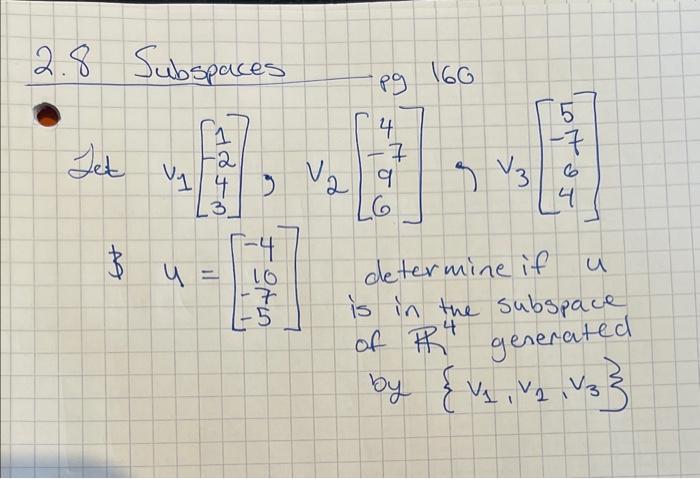 2.8 Subspaces pg 166
Let v1 [1 -2 4 3], v2 [4 -7 9 6], v3 [5 -7 6 4]
& u = [-4 10 -7 -5] determine if u
is in the subspace
of ℝ^4 generated
by {v1, v2, v3}